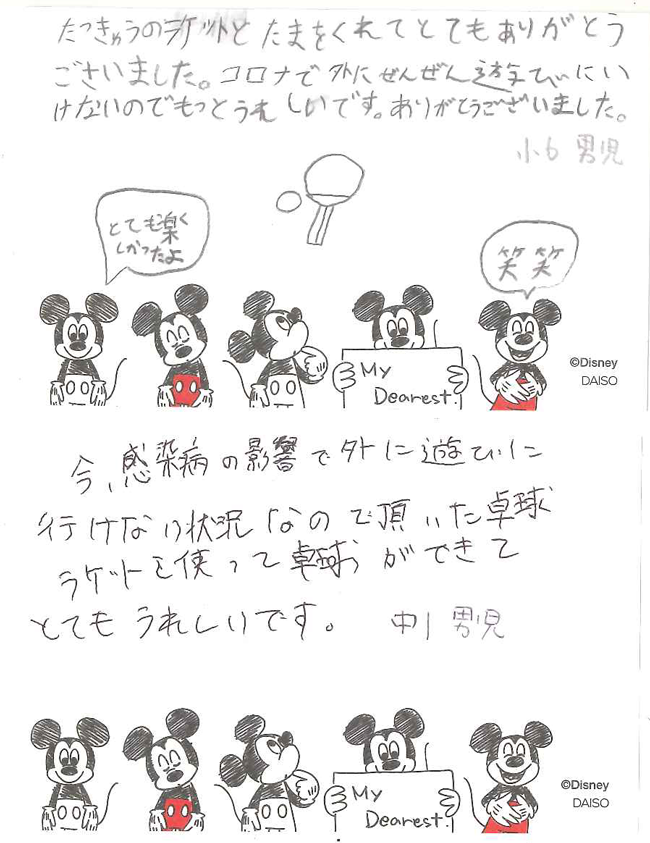 たっきゅうのラケットとたまをくれてとてもありがとう
ございました。コロナで外にぜんぜん遊びにい
けないのでもっとうれしいです。ありがとうございました。
小6 男児
とても楽く
しかったよ
笑笑
My
Dearest.
©Disney
DAISO
今、感染病の影響で外に遊びに
行けない状況なので頂いた卓球
ラケットを使って卓球ができて
とてもうれしいです。 中1 男児
My
Dearest.
©Disney
DAISO